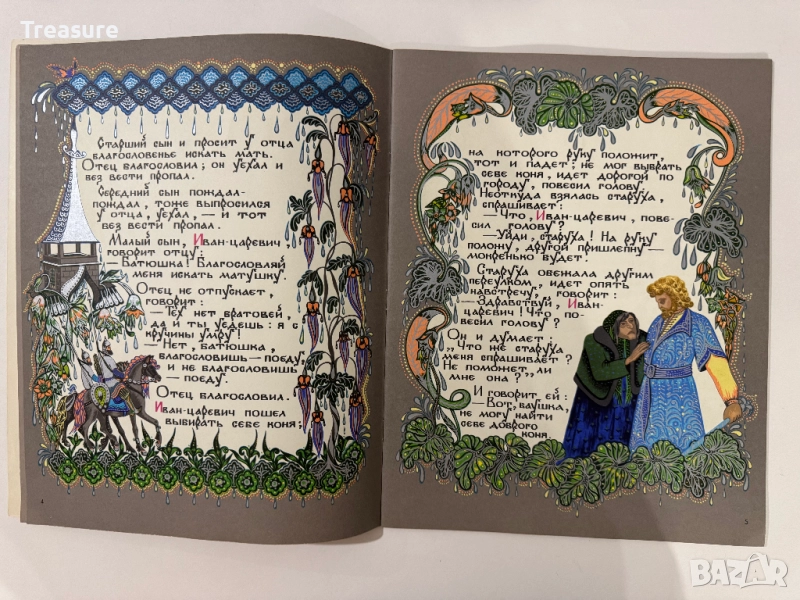 Treasure
Старший сын и просит у отца
благословенье искать мать.
Отец благословил; он уехал и
без вести пропал.
Середний сын пождал-
пождал, тоже выпросился
у отца, уехал, — и тот
без вести пропал.
Малый сын, Иван-царевич
говорит отцу:
— Батюшка! Благословляй
меня искать матушку.
Отец не отпускает,
говорит:
— Тех нет братовей,
да и ты уедешь: я с
кручины умру!
— Нет, батюшка,
благословишь — поеду,
и не благословишь
— поеду.
Отец благословил.
Иван-царевич пошел
выбирать себе коня;
4
на которого руку положит,
тот и падет; не мог выбрать
себе коня, идет дорогой по
городу, повесил голову.
Неоткуда взялась старуха,
спрашивает:
— Что, Иван-царевич, пове-
сил голову?
— Уйди, старуха! На руку
положу, другой пришлепну —
мокренько будет!
Старуха обежала другим
переулком, идет опять
навстречу, говорит:
— Здравствуй, Иван-
царевич! Что по-
весил голову?
Он и думает:
„Что же старуха
меня спрашивает?
Не поможет ли
мне она?"
И говорит ей:
— Вот, баушка,
не могу найти
себе доброго
коня.
5
BAZAR